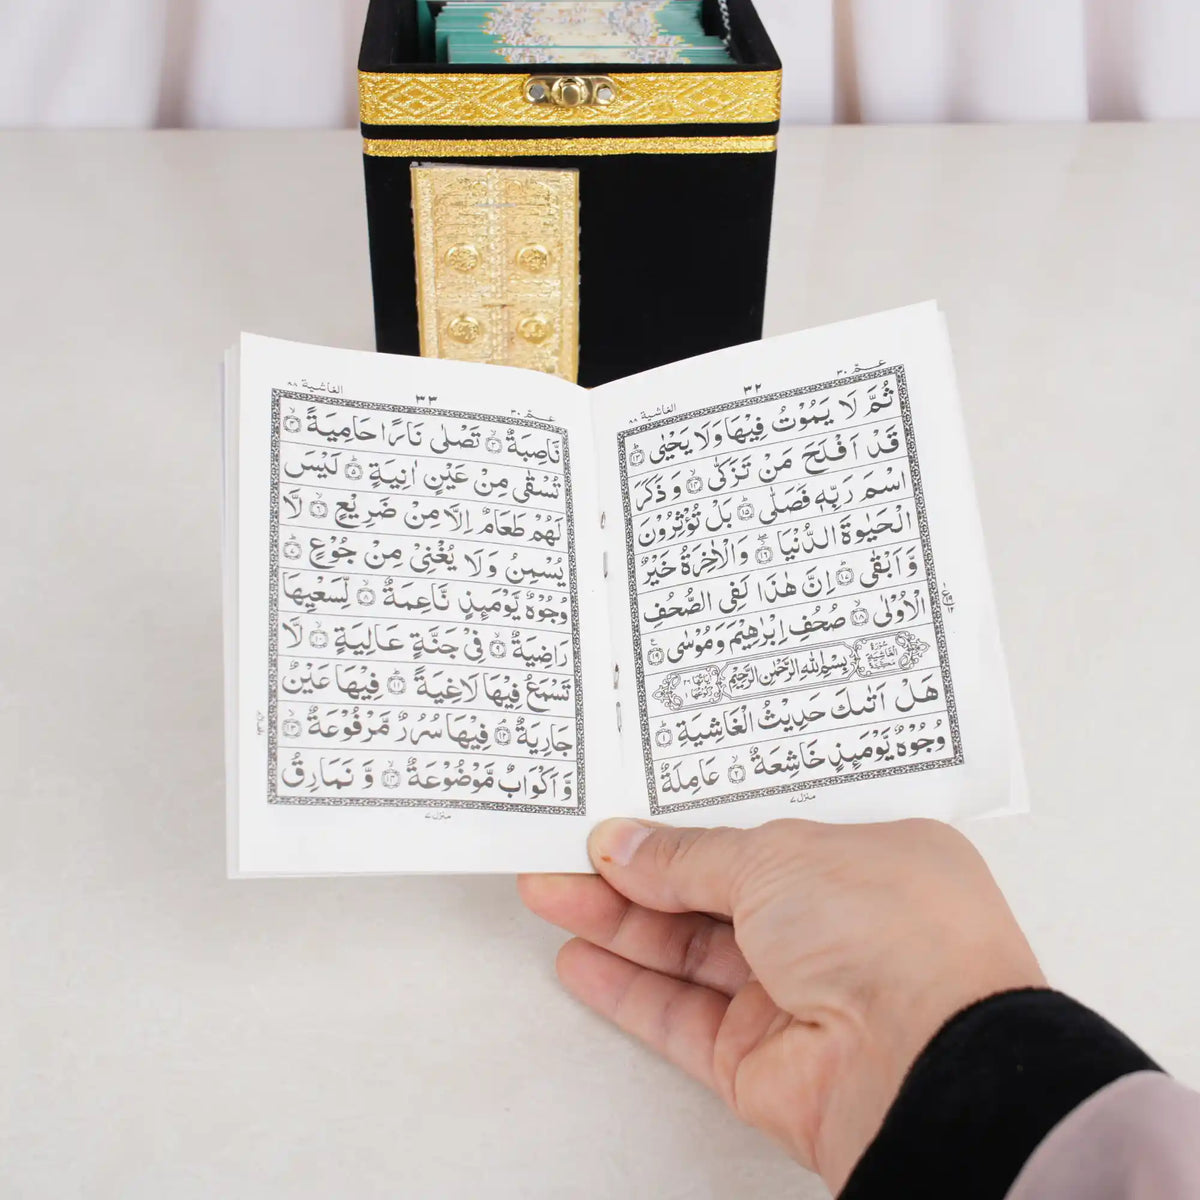 عـمّ ٣٠
٣٢
الغاشية ٨٨
ثُمَّ لَا يَمُوْتُ فِيْهَا وَلَا يَحْيٰى ۝١٣
قَدْ اَفْلَحَ مَنْ تَزَكّٰى ۝١٤ وَ ذَكَرَ
اسْمَ رَبِّهٖ فَصَلّٰى ۝١٥ بَلْ تُؤْثِرُوْنَ
الْحَيٰوةَ الدُّنْيَا ۝١٦ وَ الْاٰخِرَةُ خَيْرٌ
وَّ اَبْقٰى ۝١٧ اِنَّ هٰذَا لَفِى الصُّحُفِ
الْاُوْلٰى ۝١٨ صُحُفِ اِبْرٰهِيْمَ وَمُوْسٰى ۝١٩
سُوْرَةُ الْغَاشِيَةِ مَكِّيَّةٌ بِسْمِ اللهِ الرَّحْمٰنِ الرَّحِيْمِ
هَلْ اَتٰىكَ حَدِيْثُ الْغَاشِيَةِ ۝١
وُجُوْهٌ يَّوْمَئِذٍ خَاشِعَةٌ ۝٢ عَامِلَةٌ
منزل ٧
عـمّ ٣٠
٣٣
الغاشية ٨٨
نَّاصِبَةٌ ۝٣ تَصْلٰى نَارًا حَامِيَةً ۝٤
تُسْقٰى مِنْ عَيْنٍ اٰنِيَةٍ ۝٥ لَيْسَ
لَهُمْ طَعَامٌ اِلَّا مِنْ ضَرِيْعٍ ۝٦ لَّا
يُسْمِنُ وَلَا يُغْنِيْ مِنْ جُوْعٍ ۝٧
وُجُوْهٌ يَّوْمَئِذٍ نَّاعِمَةٌ ۝٨ لِّسَعْيِهَا
رَاضِيَةٌ ۝٩ فِيْ جَنَّةٍ عَالِيَةٍ ۝١٠ لَّا
تَسْمَعُ فِيْهَا لَاغِيَةً ۝١١ فِيْهَا عَيْنٌ
جَارِيَةٌ ۝١٢ فِيْهَا سُرُرٌ مَّرْفُوْعَةٌ ۝١٣
وَّ اَكْوَابٌ مَّوْضُوْعَةٌ ۝١٤ وَّ نَمَارِقُ
منزل ٧